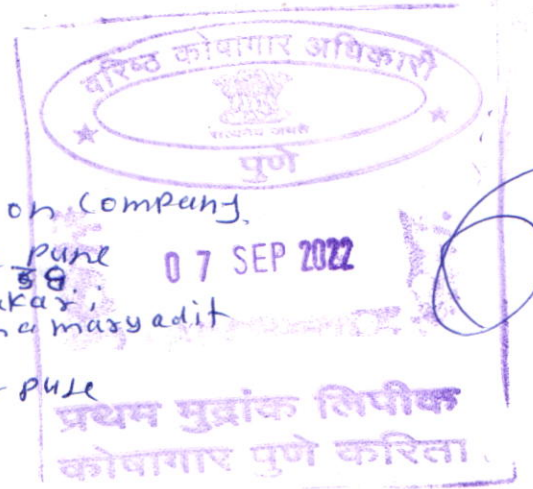 वरिष्ठ कोषागार अधिकारी
सत्यमेव जयते
पुणे
on Company,
pune
07 SEP 2022
akari
na maryadit
- pune
प्रथम मुद्रांक लिपीक
कोषागार पुणे करिता